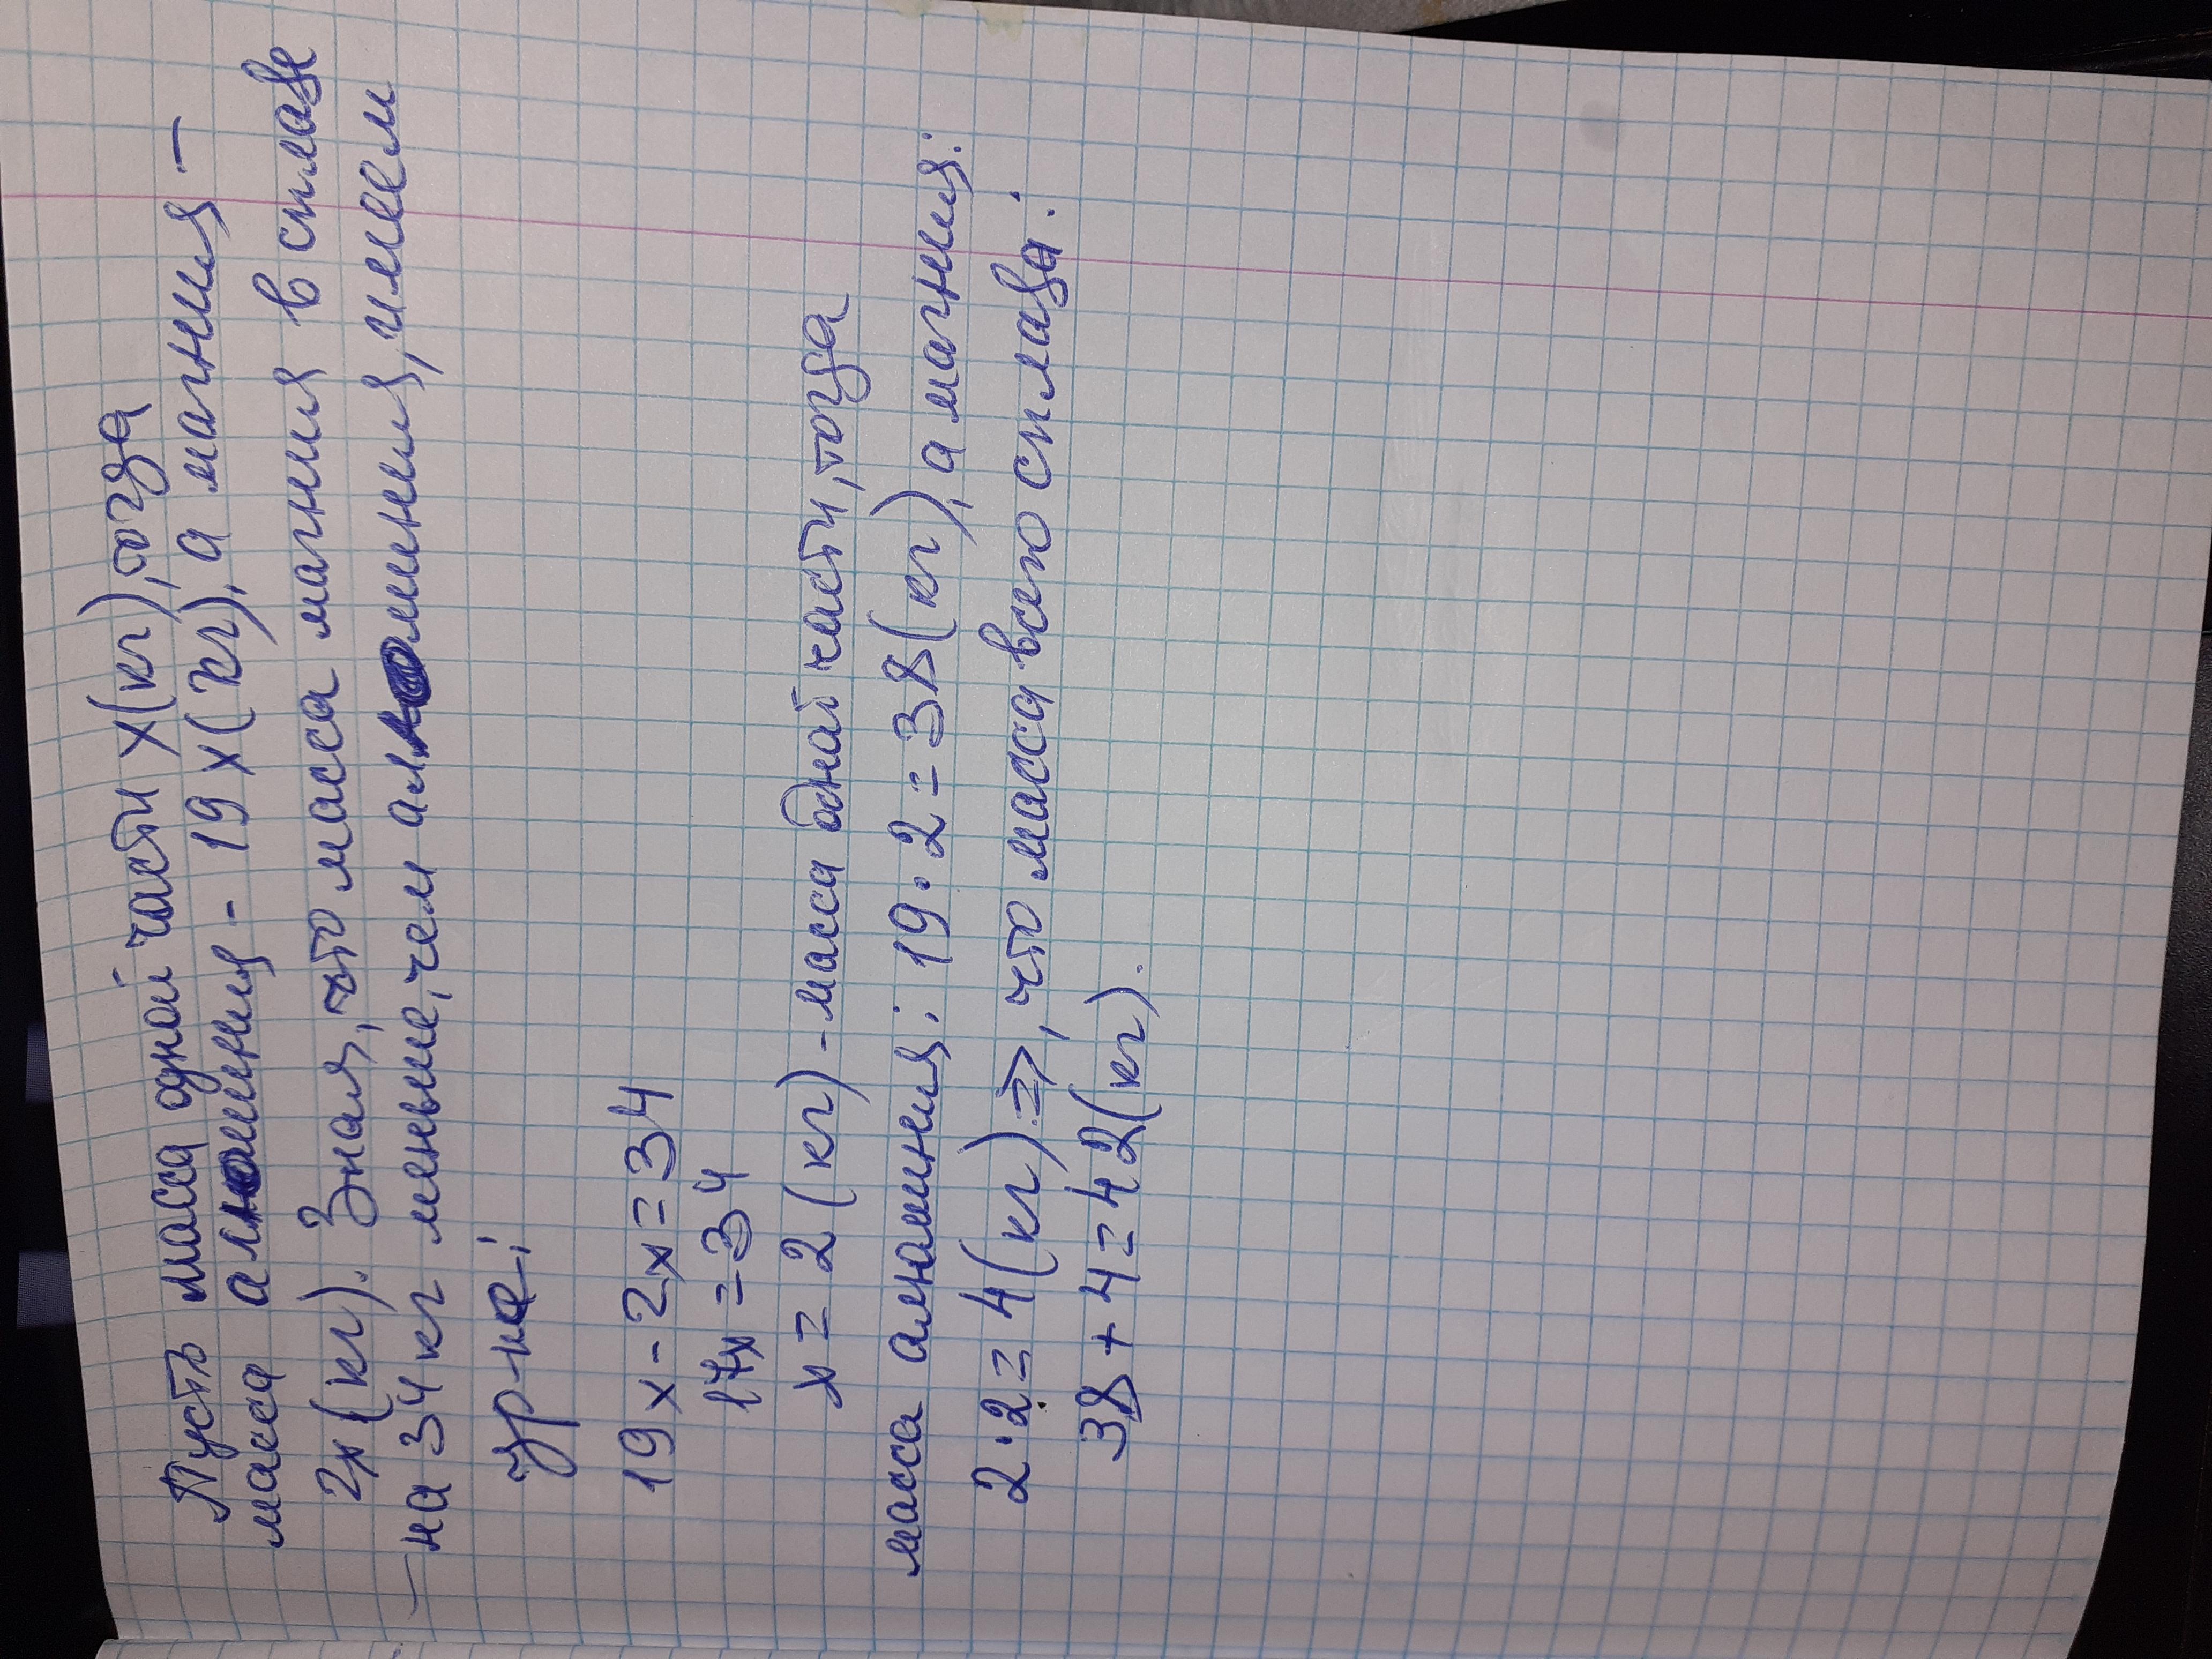 Пусть масса одной части х(кг), тогда
масса алюминия - 19х(кг), а магния -
2х(кг). Зная, что масса магния в сплаве
- на 34кг меньше, чем алюминия, имеем
ур-не:
19х-2х=34
17х=34
х=2(кг)-масса одной части, тогда
масса алюминия: 19·2=38(кг), а магния:
2·2=4(кг).⇒, что масса всего сплава:
38+4=42(кг).